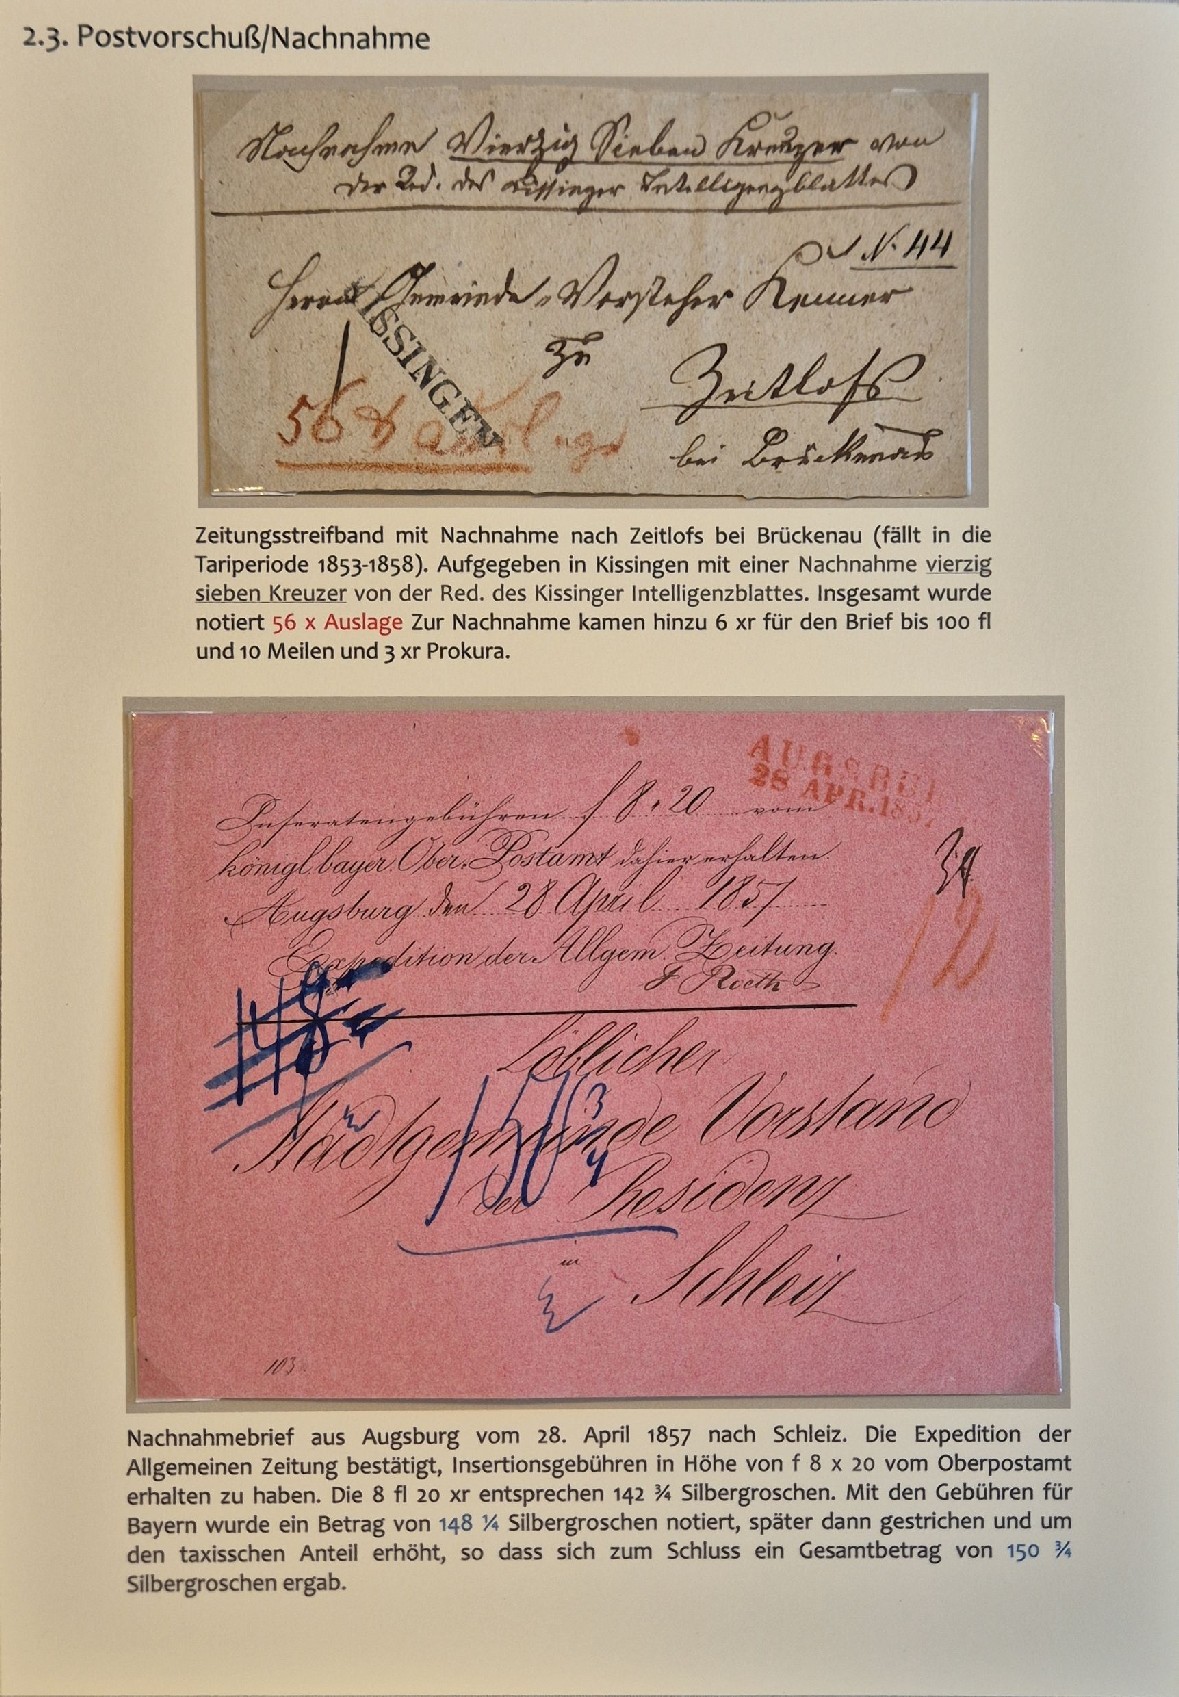 2.3. Postvorschuß/Nachnahme
Nachnahme Vierzig Sieben Kreuzer von
der Red. des Kissinger Intelligenzblattes
N. 44
Herrn Gemeinde-Vorsteher Kenner
KISSINGEN
zu
Zeitlofs
56 x Auslage
bei Brückenau
Zeitungsstreifband mit Nachnahme nach Zeitlofs bei Brückenau (fällt in die
Tariperiode 1853-1858). Aufgegeben in Kissingen mit einer Nachnahme vierzig
sieben Kreuzer von der Red. des Kissinger Intelligenzblattes. Insgesamt wurde
notiert 56 x Auslage Zur Nachnahme kamen hinzu 6 xr für den Brief bis 100 fl
und 10 Meilen und 3 xr Prokura.
AUGSBU
28 APR. 1857
Inseratengebühren f 8 . 20 vom
königl. bayer. Ober-Postamt dahier erhalten.
Augsburg den 28 April 1857
12
Expedition der Allgem. Zeitung.
Roeth
148
Löblicher
Stadtgemeinde Vorstand
150 3/4
der Residenz
in
Schleiz
103
Nachnahmebrief aus Augsburg vom 28. April 1857 nach Schleiz. Die Expedition der
Allgemeinen Zeitung bestätigt, Insertionsgebühren in Höhe von f 8 x 20 vom Oberpostamt
erhalten zu haben. Die 8 fl 20 xr entsprechen 142 ¾ Silbergroschen. Mit den Gebühren für
Bayern wurde ein Betrag von 148 ¼ Silbergroschen notiert, später dann gestrichen und um
den taxisschen Anteil erhöht, so dass sich zum Schluss ein Gesamtbetrag von 150 ¾
Silbergroschen ergab.